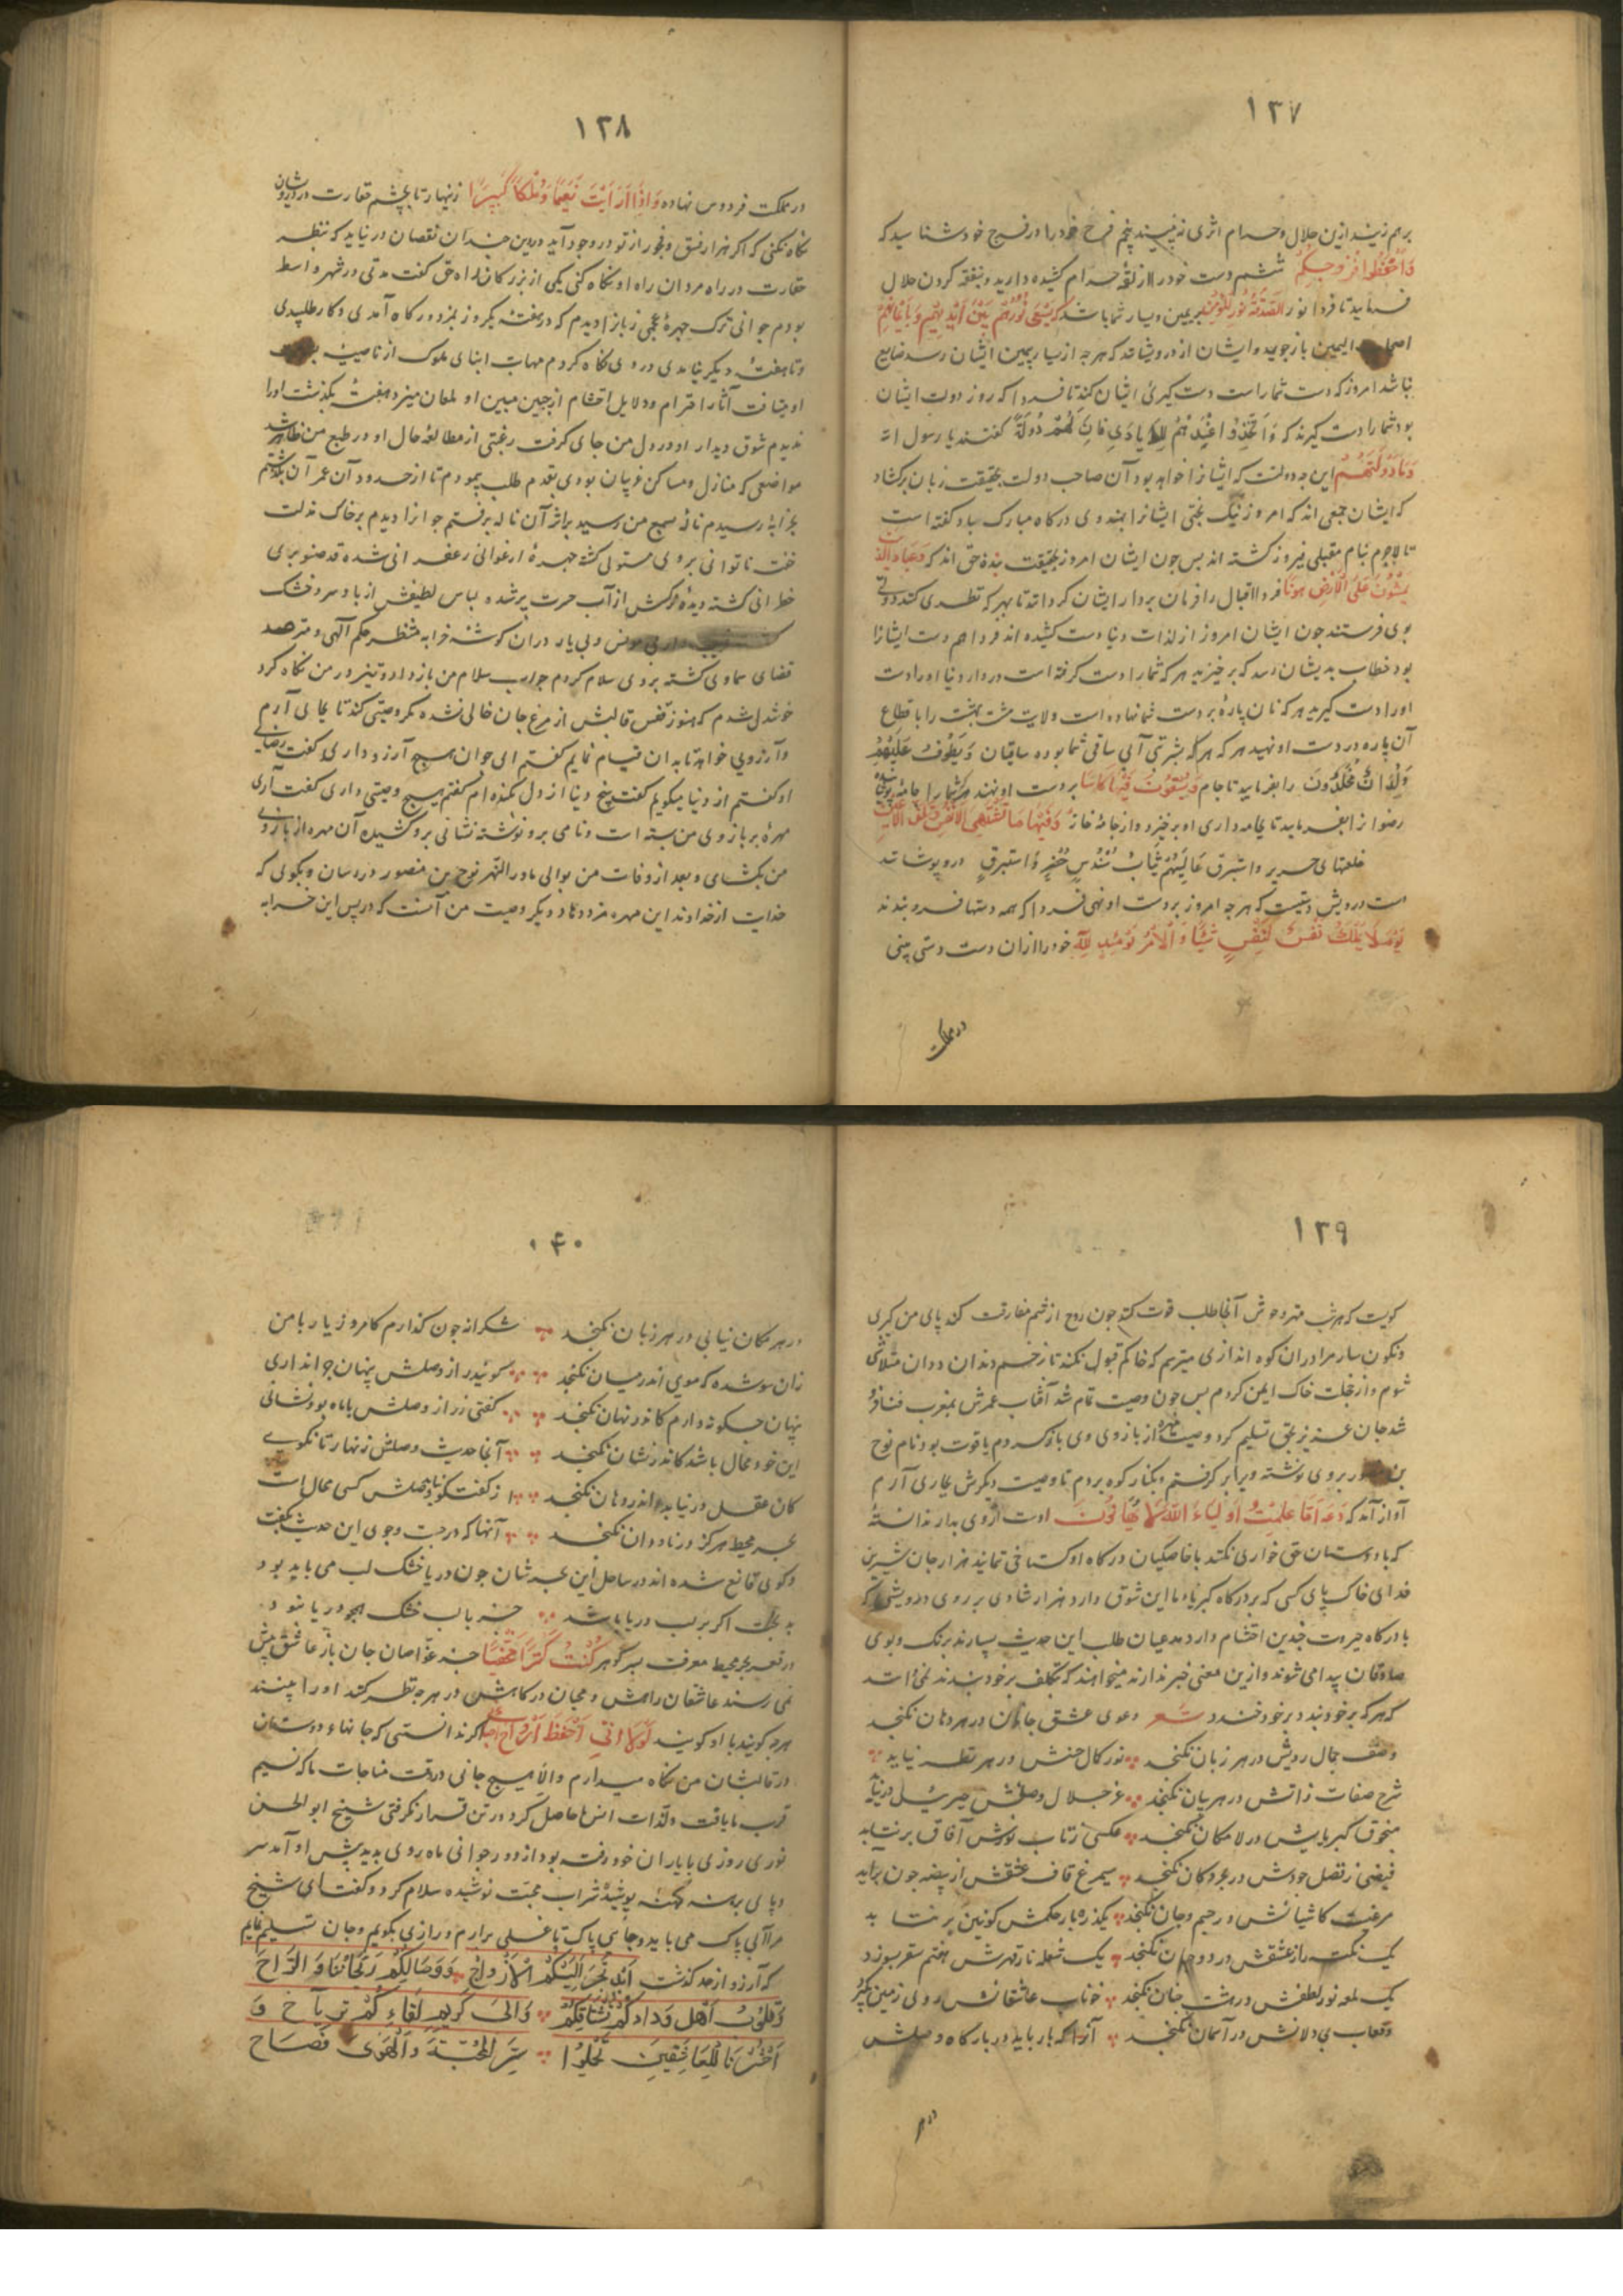 ۱۳۷
برهم زنید ازین حلال و حرام اثری نه بینید پنجم فرج خود را در فرج خود شناسید که
وَاحْفَظُوا فُرُوجَكُمْ ششم دست خود را از لقمهٔ حرام کشیده دارید و بنفقه کردن حلال
فرمایید تا فردا نور الصَّدَقَةُ نُورٌ لِلْمُؤْمِنِ بر یمین و یسار شما باشد که یَسْعَى نُورُهُمْ بَيْنَ أَيْدِيهِمْ وَبِأَيْمَانِهِمْ
الیمین باز جویید و ایشان از درویشانند که هرچه از یسار بیمین ایشان رسد ضایع
نباشد امروز که دست شما راست دست گیری ایشان کنید تا فردا که روز دولت ایشان
بود شما را دست گیرند که وَاتَّخِذُوا عِنْدَهُمُ الْأَيَادِي فَإِنَّ لَهُمْ دُولَةً گفتند یا رسول الله
وَمَا دَوْلَتُهُمْ این چه دولتست که ایشانرا خواهد بود آن صاحب دولت بحقیقت زبان برگشاد
که ایشان جمعی اند که امروز نیک بختی ایشانرا بهندوی درگاه مبارک باد گفته است
تا لاجرم بنام مقبلی فیروز گشته اند پس چون ایشان امروز بحقیقت بندهٔ حق اند که وَعِبَادُ الَّذِينَ
يَمْشُونَ عَلَى الْأَرْضِ هَوْنًا فردا اقبال را فرمان بردار ایشان گرداند تا بهر که نظری کنند دولتی
بوی فرستند چون ایشان امروز از لذات دنیا دست کشیده اند فردا هم دست ایشانرا
بود خطاب بدیشان رسد که برخیزید هر که شما را دست گرفته است در دار دنیا او را دست
او را دست گیرید هر که نان پارهٔ بر دست شما نهاده است ولایت هشت بهشت را باقطاع
آن پاره در دست او نهید هر که شربتی آبی ساقی شما بوده ساقیان وَيَطُوفُ عَلَيْهِمْ
وِلْدَانٌ مُخَلَّدُونَ را بفرمایید تا جام وَيُسْقَوْنَ فِيهَا كَأْسًا بر دست او نهند هر که شما را جامهٔ پوشیده
رضوانرا بفرمایید تا بجامه داری او برخیزد و از جامهٔ خانهٔ وَفِيهَا مَا تَشْتَهِي الْأَنْفُسُ وَتَلَذُّ الْأَعْيُنُ
خلعتهای حریر و استبرق عَالِيَهُمْ ثِيَابُ سُنْدُسٍ خُضْرٌ وَإِسْتَبْرَقٌ درو پوشانند
دست درویش دستیست که هرچه امروز بر دست او نهی فردا که همه دستها فرو بندند
يَوْمَ لَا تَمْلِكُ نَفْسٌ لِنَفْسٍ شَيْئًا وَالْأَمْرُ يَوْمَئِذٍ لِلَّهِ خود را از آن دست دستی بینی
در مملکت
۱۳۸
در مملکت فردوس نهاده وَإِذَا رَأَيْتَ نَعِيمًا وَمُلْكًا كَبِيرًا زنهار تا بچشم حقارت در درویشان
نگاه نکنی که اگر هزار فسق و فجور از تو در وجود آید در دین چندان نقصان در نیاید که بنظر
حقارت در راه مردان راه او نگاه کنی یکی از بزرگان راه حق گفت مدتی در شهر واسط
بودم جوانی ترک چهرهٔ عجمی زبانرا دیدم که در هفتهٔ یکروز بمزدور گاه آمدی و کار طلبیدی
و تا هفتهٔ دیگر نیامدی در وی نگاه کردم مهابت ابنای ملوک از ناصیهٔ
او میتافت آثار احترام و دلایل احتشام از جبین مبین او لمعان میزد هفتهٔ بگذشت او را
ندیدم شوق دیدار او در دل من جای گرفت رغبتی از مطالعهٔ حال او در طبع من ظاهر شد
مواضعی که منازل و مساکن غریبان بودی بقدم طلب پیمودم تا از حدود آن عمران بگذشتم
بخرابهٔ رسیدم نالهٔ بسمع من رسید بر اثر آن ناله برفتم جوانرا دیدم بر خاک مذلت
خفته ناتوانی بر وی مستولی گشته چهرهٔ ارغوانی زعفرانی شده قد صنوبری
خطرانی گشته دیدهٔ نرگس از آب حسرت پر شده لباس لطیفش از باد سرد خشک
بی مونس و بی یار در آن گوشهٔ خرابه منتظر حکم الهی و مترصد
قضای سماوی گشته بر وی سلام کردم جواب سلام من باز داد و تیز در من نگاه کرد
خوشدل شدم که هنوز قفس قالبش از مرغ جان خالی نشده مگر وصیتی کند تا بجای آرم
و آرزویی خواهد تا بدان قیام نمایم گفتم ای جوان هیچ آرزو داری گفت رضای
او گفتم از دنیا میگویم گفت بیخ دنیا از دل بکنده ام گفتم هیچ وصیتی داری گفت آری
مهرهٔ بر بازوی من بسته است و نامی برو نوشته نشانی برو کشیده آن مهره از بازوی
من بگشای و بعد از وفات من بوالی ماورالنهر نوح بن منصور در رسان و بگوی که
خدایت از خداوند این مهره مزد دهاد و دیگر وصیت من آنست که در پس این خرابه
۱۳۹
کویست که هر شب وحوش آنجا طلب قوت کند چون روح از جسم مفارقت کند پای من گیری
و نگونسار مرا در آن کوه اندازی میترسم که خاکم قبول نکند تا زخم دندان ددان متلاشی
شوم و از خجلت خاک ایمن گردم پس چون وصیت تمام شد آفتاب عمرش بمغرب فنا فرو
شد جان عزیز بحق تسلیم کرد وصیت مهره از بازوی وی باز کردم یاقوت بود نام نوح
بن منصور بر وی نوشته ویرا بر گرفتم و بکنار کوه بردم تا وصیت دیگرش بجای آرم
آواز آمد که دَعْهُ أَمَا عَلِمْتَ أَوْلِيَاءَ اللَّهِ لَا يُهَانُونَ دست ازوی بدار ندانستهٔ
که با دوستان حق خواری نکند با خاصگیان درگاه او گستاخی ننمایند هزار جان شیرین
فدای خاک پای کسی که بر درگاه کبریا با ما این شوق دارد هزار شادی بر روی درویشی که
با درگاه جبروت چندین احتشام دارد مدعیان طلب این حدیث بسیارند برنگ و بوی
صادقان پیدا می شوند و ازین معنی خبر ندارند میخواهند که بتکلف بر خود بندند نمی دانند
که هر که بر خود بندد بر خود خندد شعر دعوی عشق جانان در هر دهان نگنجد
وصف جمال رویش در هر زبان نگنجد نور کمال حسنش در هر نظر نیاید
شرح صفات ذاتش در هر بیان نگنجد عز جلال وصلش جبرئیل در نیابد
منجوق کبریایش در لامکان نگنجد عکسی ز تاب نورش آفاق بر نتابد
فیضی ز فضل جودش در بحر و کان نگنجد سیمرغ قاف عشقش از بیضه چون برآید
مرغیست کاشیانش در جسم و جان نگنجد یکذره بار حکمش کونین بر نتابد
یک نکته راز عشقش در دو جهان نگنجد یک شعله نار قهرش هفتم سقر بسوزد
یک لمعه نور لطفش در هشت جنان نگنجد خوناب عاشقانش روی زمین بگیرد
وقعات بیدلانش در آسمان نگنجد آنرا که بار باید در بارگاه وصلش
در هر
۱۴۰
در هر مکان نیابی در هر زبان نگنجد شکرانه چون گذارم کامروز یار با من
زان سو شده که مویی اندر میان نگنجد گویند راز وصلش پنهان چرا نداری
پنهان چگونه دارم کاندر نهان نگنجد گفتی ز راز وصلش با ما بده نشانی
این خود محال باشد کاندر نشان نگنجد آنجا حدیث وصلش زنهار تا نگویی
کان عقل در نیابد و اندر دهان نگنجد از گفتگو بوصلش کس محال است
بحر محیط هرگز در ناودان نگنجد آنها که در جست و جوی این حدیث بگفت
و گوی قانع شده اند در ساحل این بحر شان چون دریا خشک لب می باید بود
بدبخت اگر بر لب دریا باشد جز با لب خشک همچو دریا نبود
در قعر بحر محیط معرفت بسر گوهر كُنْتُ كَنْزًا مَخْفِيًّا جز غواصان جان باز عاشق پیش
نمی رسند عاشقان راهش و محبان درگاهش در هرچه نظر کنند او را بینند
هرچه گویند با او گویند لَوْلَا أَنِّي أَحْفَظُ أَرْوَاحَ اگر نه آنستی که جانهاء دوستان
در قالبشان من نگاه میدارم والا هیچ جانی در وقت مناجات ما که نسیم
قرب ما یافت و لذات انس ما حاصل کرد در تن قرار نگرفتی شیخ ابوالحسن
نوری روزی با یاران خود رفته بود از دور جوانی ماه روی بدید پیش او آمد سر
و پای برهنه کهنه پوشیده شراب محبت نوشیده سلام کرد و گفت ای شیخ
مرا آبی پاک می باید و جایی پاک تا غسلی برآرم و رازی بگویم و جان تسلیم نمایم
که آرزو از حد گذشت أَبَدًا تَحِنُّ إِلَيْكُمُ الْأَرْوَاحُ وَوِصَالُكُمْ رَيْحَانُهَا وَالرَّاحُ
وَقُلُوبُ أَهْلِ وِدَادِكُمْ تَشْتَاقُكُمْ وَإِلَى كَرِيمِ لِقَاءِكُمْ تَرْتَاحُ وَ
لِلْعَاشِقِينَ تَحَمَّلُوا سِرَّ الْمَحَبَّةِ وَالْهَوَى فَضَّاحُ